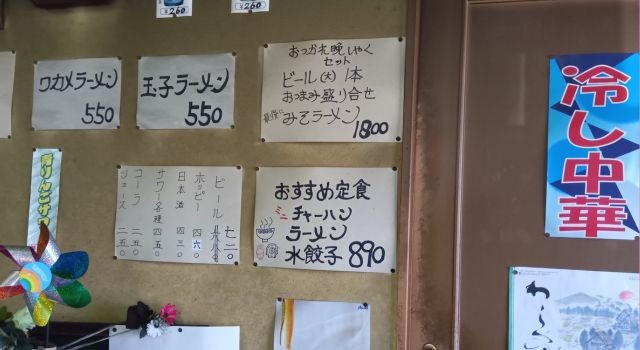 ¥260
¥260
ワカメラーメン
550
玉子ラーメン
550
おつかれ晩しゃく
セット
ビール(大)1本
おつまみ盛り合せ
みそラーメン
1800
冷し中華
青りんごサワ
ビール 七二〇
ホッピー 四六〇
日本酒 四三〇
サワー各種 四五〇
コーラ 二五〇
ジュース 二五〇
おすすめ定食
ミニ
チャーハン
ラーメン
水餃子 890